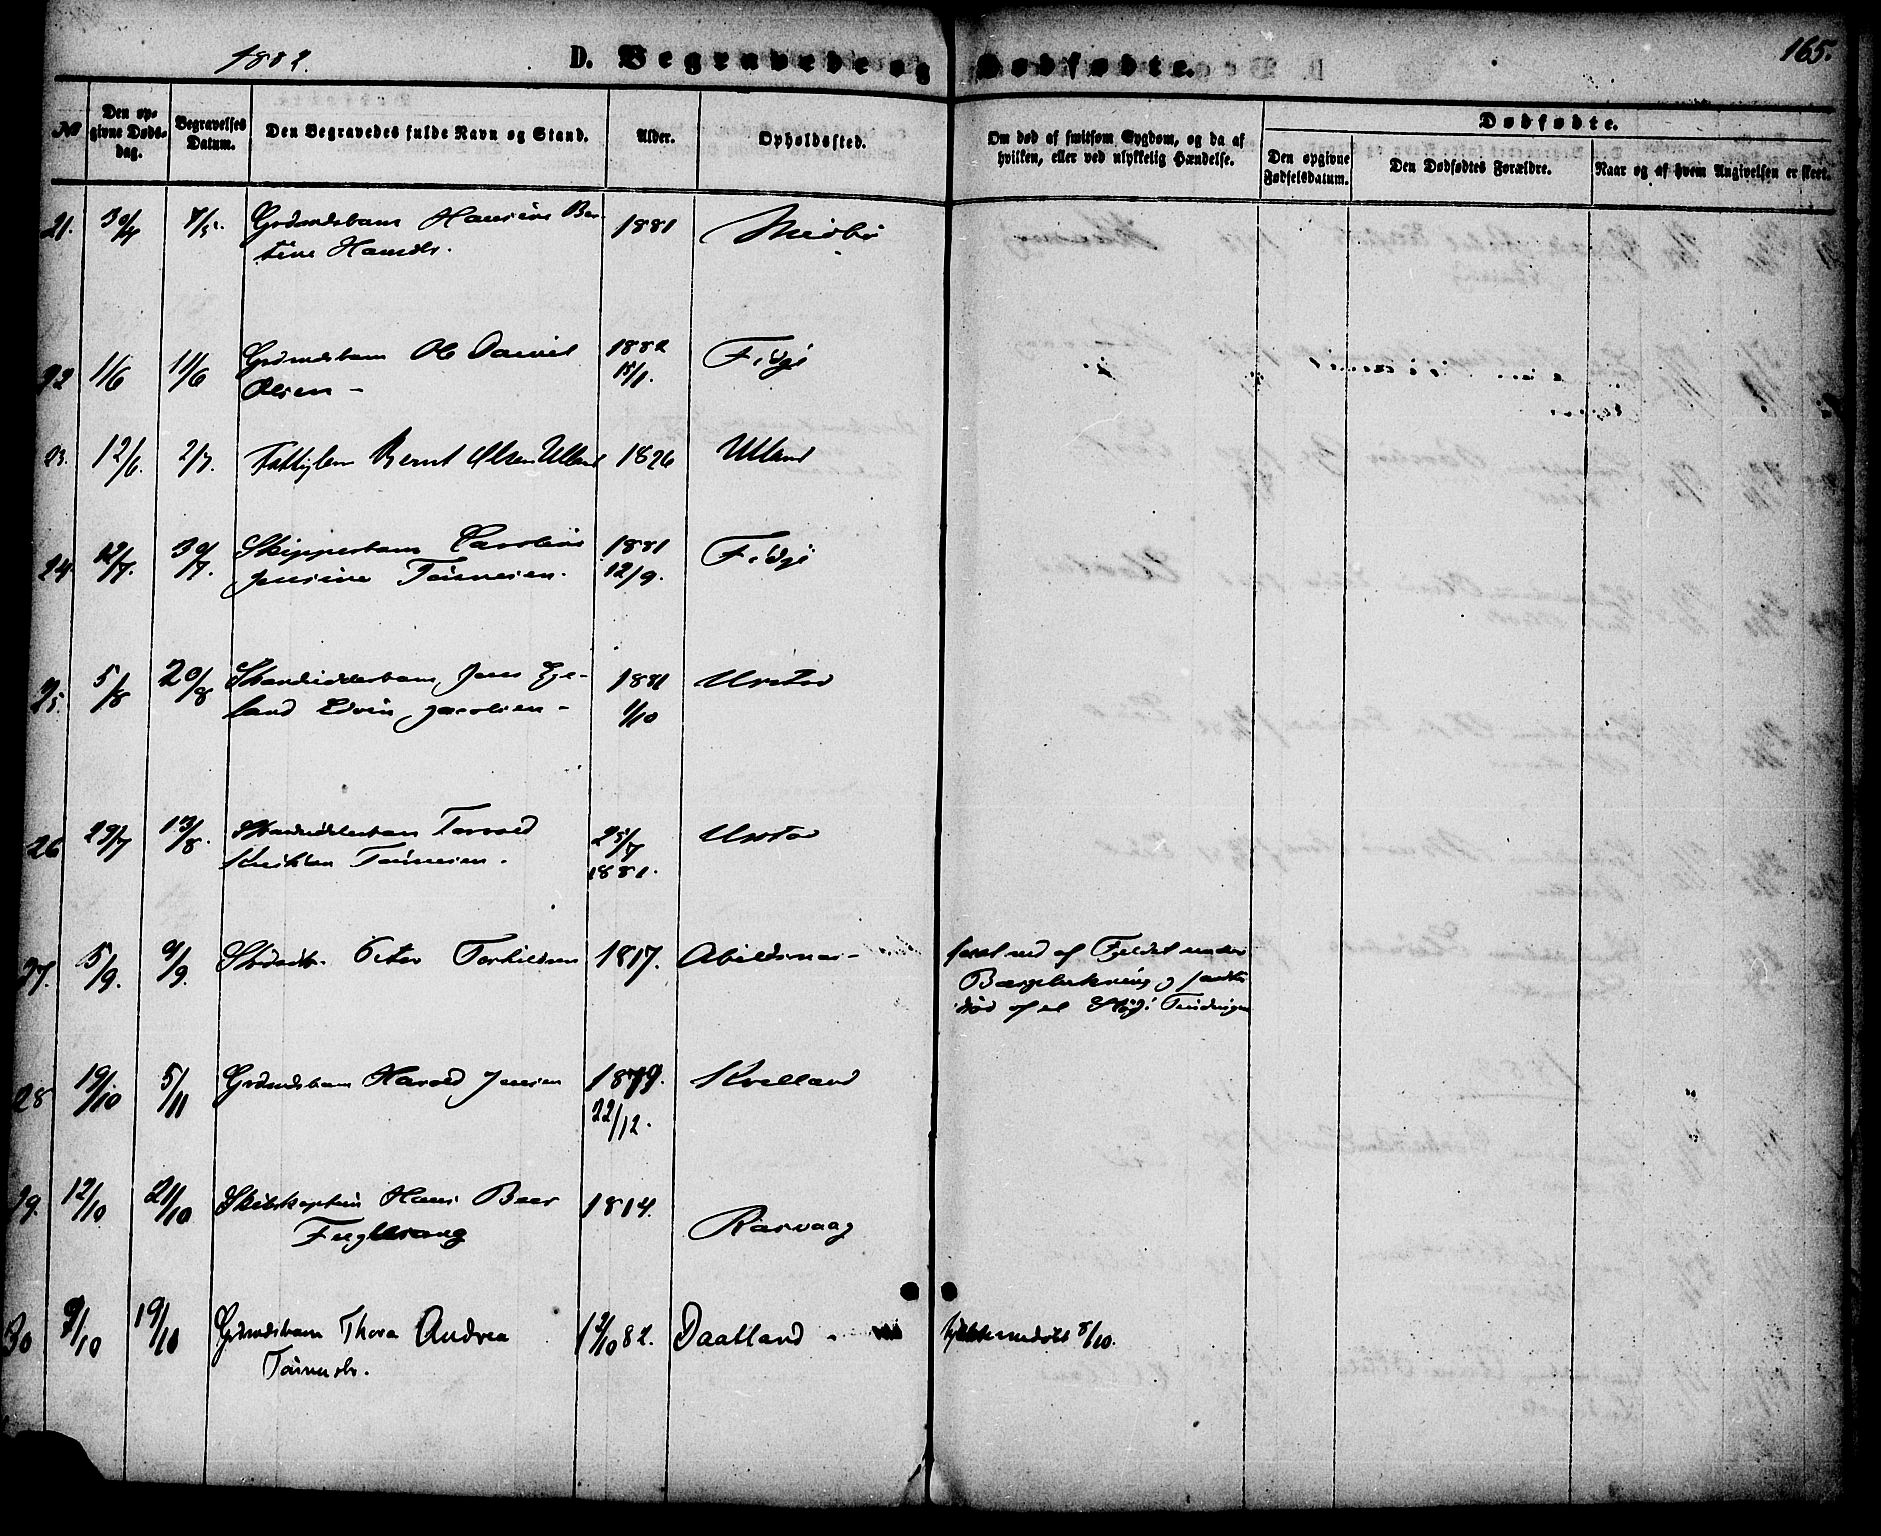 1882.
D. Begravede og Dødfødte.
165.
No
Den opgivne Dødsdag.
Begravelses Datum.
Den Begravedes fulde Navn og Stand.
Alder.
Opholdssted.
Om død af smitsom Sygdom, og da af hvilken, eller ved ulykkelig Hændelse.
Dødfødte.
Den opgivne Fødselsdatum.
Den Dødfødtes Forældre.
Naar og af hvem Angivelsen er skeet.
21. 30/4 7/5. Grdmdsbarn Hansine Ber- 1881
tine Hansdr.
22 1/6 11/6 Grdmdsbarn Ole Daniel 1882 Fidje
Olsen - 15/1.
23. 12/6. 2/7. Fattiglem Bernt Olsen Ulland 1826 Ulland
24 12/7. 30/7. Skippersbarn Caroline 1881 Fidje
Jensine Tønnesen. 12/9.
25. 5/8 20/8 Strandsidderbarn Jens Ege- 1881 Urstad
land Edvin Jacobsen - 1/10
26 29/7 13/8. Strandsidderbarn Torvald 25/7 Urstad
Tønnesen. 1881.
27. 5/9. 9/9. Peter Torkildsen 1817. Abildsnes - ned af Fjeldet under
Bærplukning og fandtes
død af et Stød i Tindingen
28 19/10 5/11 Grdmdsbarn Harald Jensen 1879. Kvelland
22/12.
29. 12/10 21/10 Skibskaptein Hans Beer 1814. Rasvaag
Fuglevang
30 9/10 19/10 Grdmdsbarn Thora Andrea 1/10 82. Daatland hjemmedøbt 8/10.
Tønnesdr.